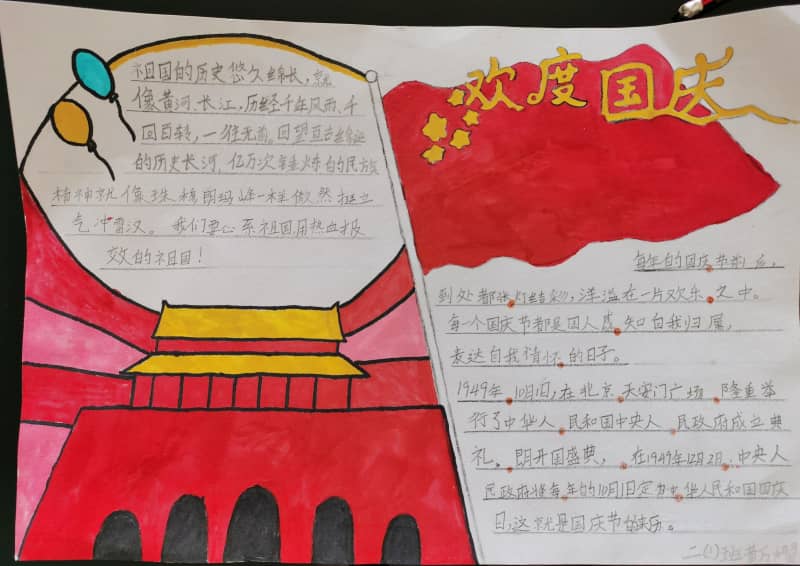 欢度国庆
祖国的历史悠久绵长,就
像黄河、长江,历经千年风雨、千
回百转,一往无前。回望亘古绵延
的历史长河,亿万次锤炼的民族
精神就像珠穆朗玛峰一样傲然挺立
气冲霄汉。我们要心系祖国用热血报
效的祖国!
每年的国庆节前后,
到处都张灯结彩,洋溢在一片欢乐之中。
每一个国庆节都是国人感知自我归属,
表达自我情怀的日子。
1949年10月1日,在北京天安门广场隆重举
行了中华人民和国中央人民政府成立典
礼。即开国盛典,在1949年12月2日,中央人
民政府将每年的10月1日定为中华人民和国国庆
日,这就是国庆节的来历。
二(1)班